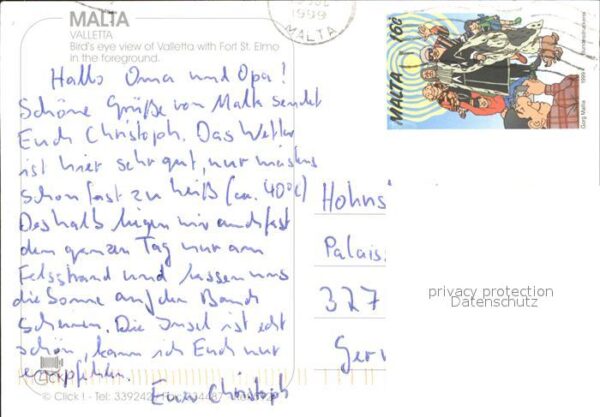 MALTA
VALLETTA
Bird's eye view of Valletta with Fort St. Elmo
in the foreground.
1999
MALTA
MALTA 16c
1999
Hallo Oma und Opa!
Schöne Grüße von Malta sendet
Euch Christoph. Das Wetter
ist hier sehr gut, nur meistens
schon fast zu heiß (ca. 40°C)
Deshalb liegen wir auch fast
den ganzen Tag nur am
Felsstrand und lassen uns
die Sonne auf den Bauch
scheinen. Die Insel ist echt
schön, kann ich Euch nur
empfehlen.
Euer Christoph
Hohns
Palais
327
Ger
privacy protection
Datenschutz
CLICK
© Click ! - Tel: 339242